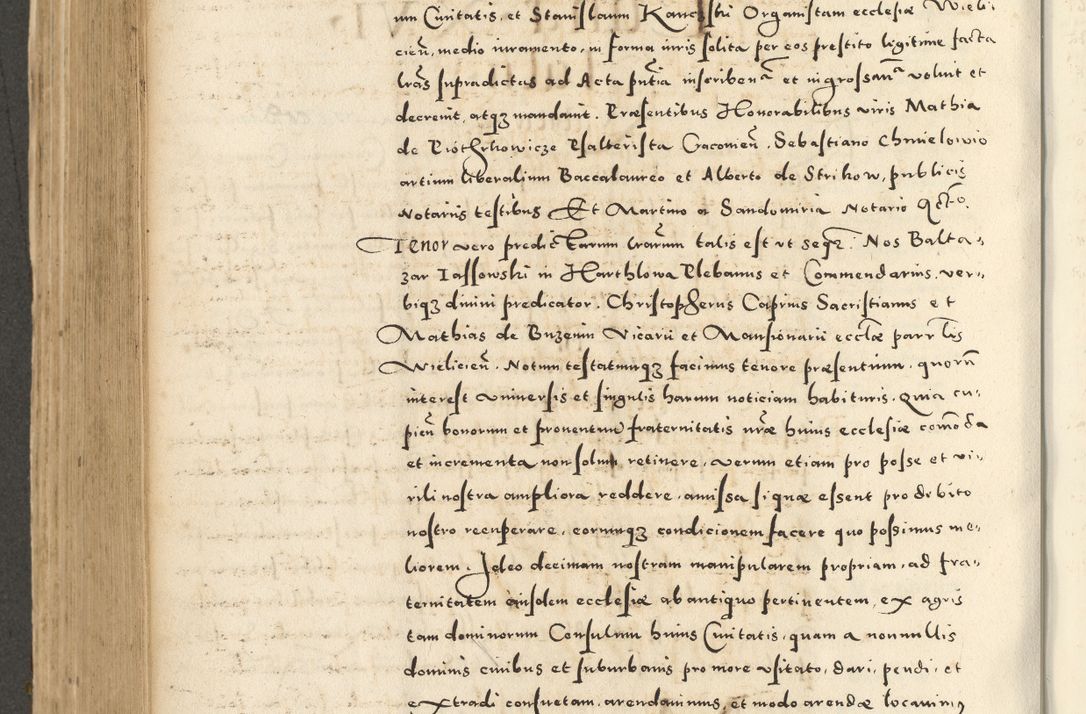 um Civitatis, et Stanislaum Kanczski Organistam ecclesiæ Wieli
cień, medio iuramento, in forma iuris solita per eos prestito legitime facta
lras supradictas ad Acta pñtia inscribenā et ingrossanā voluit et
decrevit, atqʒ mandavit. Præsentibus Honorabilibus viris Mathia
de Piothrkowicze Psalterista Cracovień, Sebastiano Chmielowio
artium liberalium Baccalaureo et Alberto de Strikow, publicis
Notariis testibus Et Martino a Sandomiria Notario
Tenor vero predictarum lrarum talis est ut seqr. Nos Balta-
zar Iassowski in Harthlowa Plebanus et Commendarius, ver-
biqʒ divini predicator. Christopherus Caprius Sacristianus et
Mathias de Buzenin Vicarii et Mansionarii eccłæ parrlis
Wielicień. Notum testatumqʒ facimus tenore præsentium, quorū
interest universis et singulis harum noticiam habituris. Quia cu-
pień bonorum et proventuū fraternitatis nræ huius ecclesiæ com̄oda
et incrementa non solum retinere, verum etiam pro posse et vi-
rili nostra ampliora reddere, amissa si quæ essent pro debito
nostro recuperare, eorumqʒ condicionem facere quo possimus me-
liorem. Ideo decimam nostram manipularem propriam, ad fra-
ternitatem eiusdem ecclesiæ ab antiquo pertinentem, ex agris
tam dominorum Consulum huius Civitatis, quam a nonnullis
dominis civibus et suburbanis pro more usitato, dari, pendi, et
extradi consuetam, arendavimus, et modo arendæ locavimꝰ